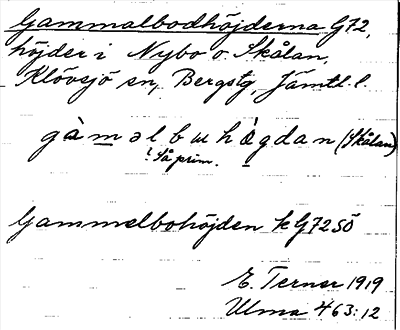 Gammalbodhöjderna G72,
höjder i Nybo o. Skålan,
Klövsjö sn, Bergstg, Jämtl. l.
gàməl bɯ hògdan (Skålan)
! Så prim.
Gammelbohöjden k G72 SÖ
E. Terner 1919
Ulma 463:12